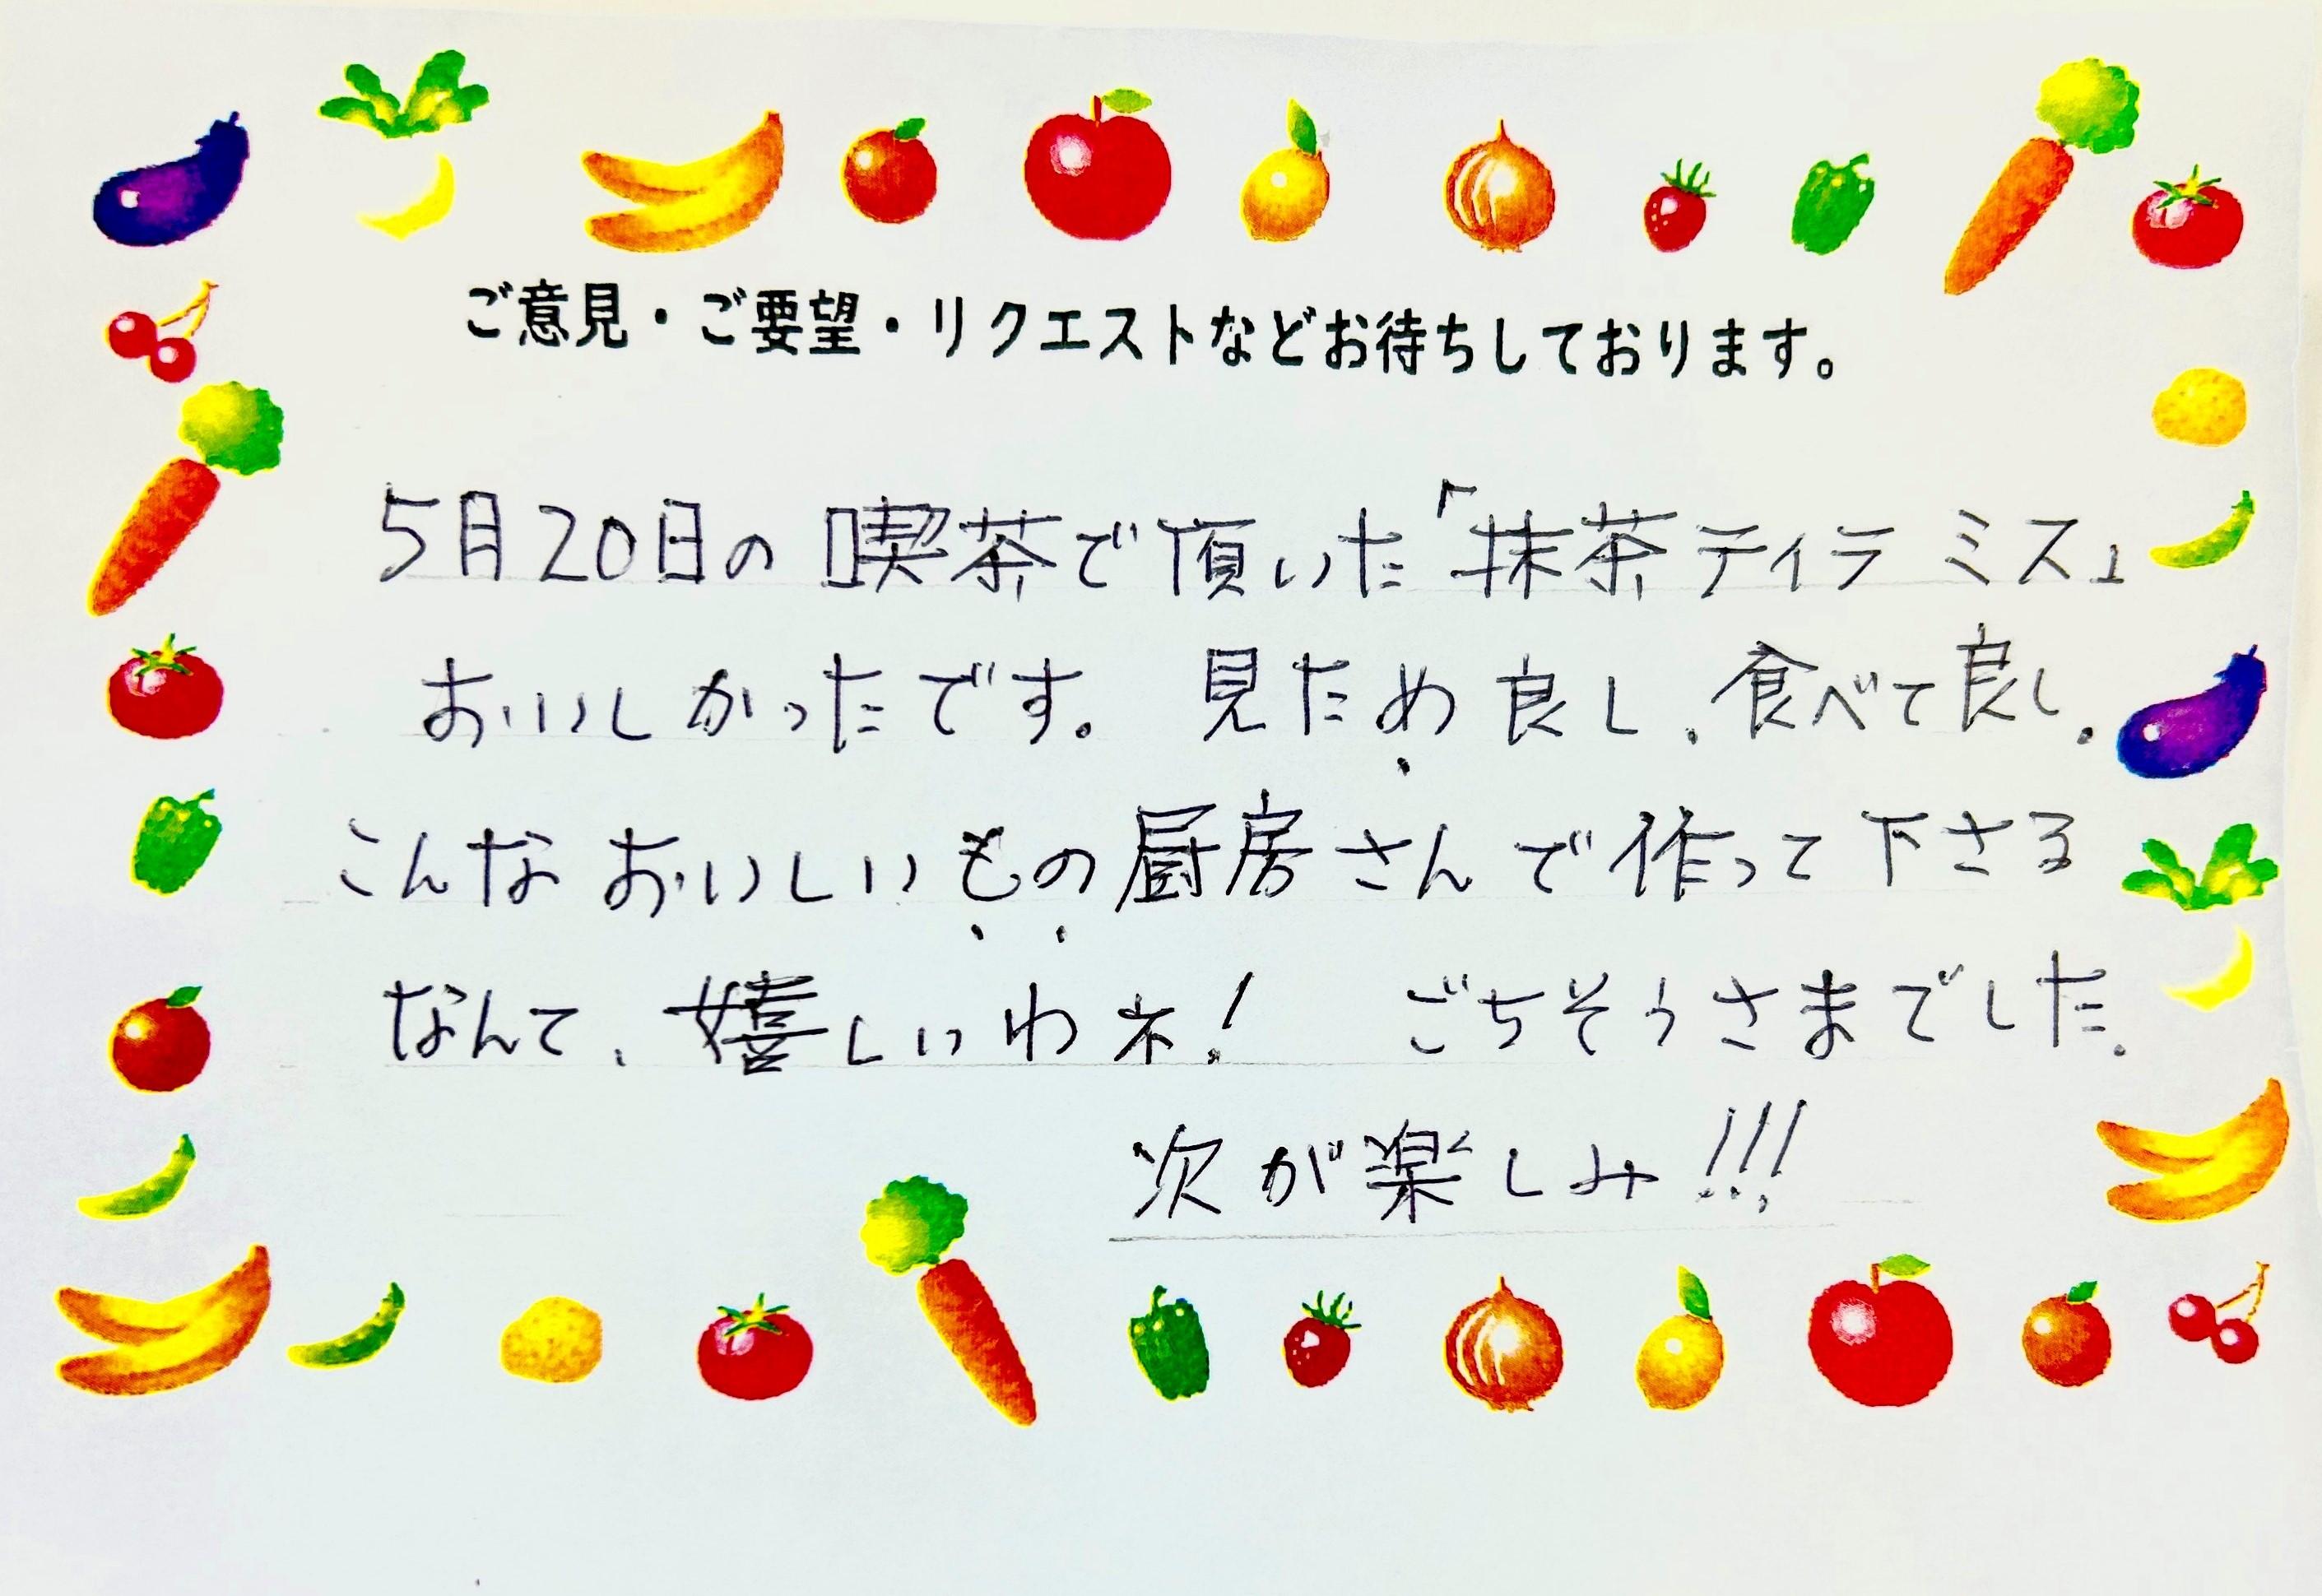 ご意見・ご要望・リクエストなどお待ちしております。
5月20日の喫茶で頂いた「抹茶ティラミス」
おいしかったです。 見ため良し、食べて良し。
こんなおいしいもの厨房さんで作って下さる
なんて、嬉しいわネ! ごちそうさまでした。
次が楽しみ!!!